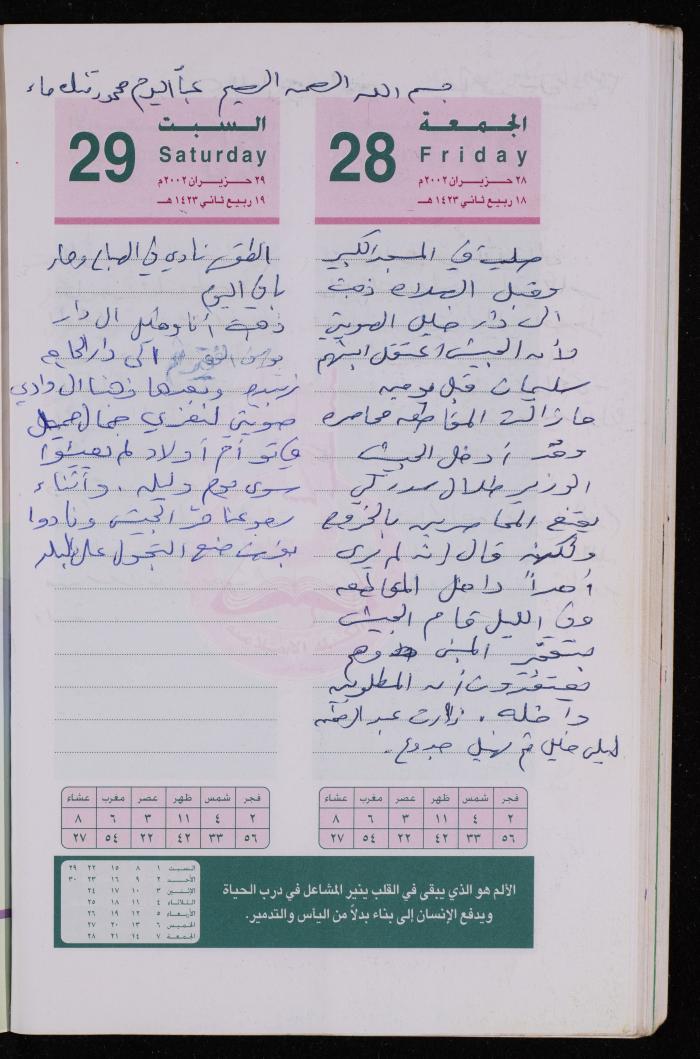 بسم الله الرحمن الرحيم عبأ اليوم محمود تنك ماء
الجمعة
28
Friday
٢٨ حزيران ٢٠٠٢م
١٨ ربيع ثاني ١٤٢٣ هـ
صليت في المسجد الكبير
وقبل الصلاة ذهبت
الى دار خليل الصويتي
لأن الجيش اعتقل ابنهم
سليمان قبل يومين
ما زالت المقاطعه محاصره
وقد أدخل الجيش
الوزير طلال سدر لكي
يقنع المحاصرين بالخروج
ولكنه قال إنه لم يرى
أحداً داخل المقاطعه
وفي الليل قام الجيش
بتفجير المبنى وهم
يعتقدون أن المطلوبين
داخله . زارت عبد الرحمن
ليلى خليل ثم نهيل جدوع .
السبت
29
Saturday
٢٩ حزيران ٢٠٠٢م
١٩ ربيع ثاني ١٤٢٣ هـ
الطوق نادي في الصباح وصار
باقي اليوم
ذهبت أنا وهيكل الى دار
الى دار الحاجه
زبيده وبعدها ذهبنا الى وادي
صويتي لنعزي جمال
أم أولاد لم يعيشوا
سوى يوم وليله . وأثناء
رجوعنا مر الجيش ونادوا
بفرض منع التجول على البلد
فجر شمس ظهر عصر مغرب عشاء
٢ ٤ ١١ ٣ ٦ ٨
٥٦ ٣٣ ٤٢ ٢٢ ٥٤ ٢٧
فجر شمس ظهر عصر مغرب عشاء
٢ ٤ ١١ ٣ ٦ ٨
٥٦ ٣٣ ٤٢ ٢٢ ٥٤ ٢٧
الألم هو الذي يبقى في القلب ينير المشاعل في درب الحياة
ويدفع الإنسان إلى بناء بدلاً من اليأس والتدمير.
السبت ١ ٨ ١٥ ٢٢ ٢٩
الأحد ٢ ٩ ١٦ ٢٣ ٣٠
الاثنين ٣ ١٠ ١٧ ٢٤
الثلاثاء ٤ ١١ ١٨ ٢٥
الأربعاء ٥ ١٢ ١٩ ٢٦
الخميس ٦ ١٣ ٢٠ ٢٧
الجمعة ٧ ١٤ ٢١ ٢٨